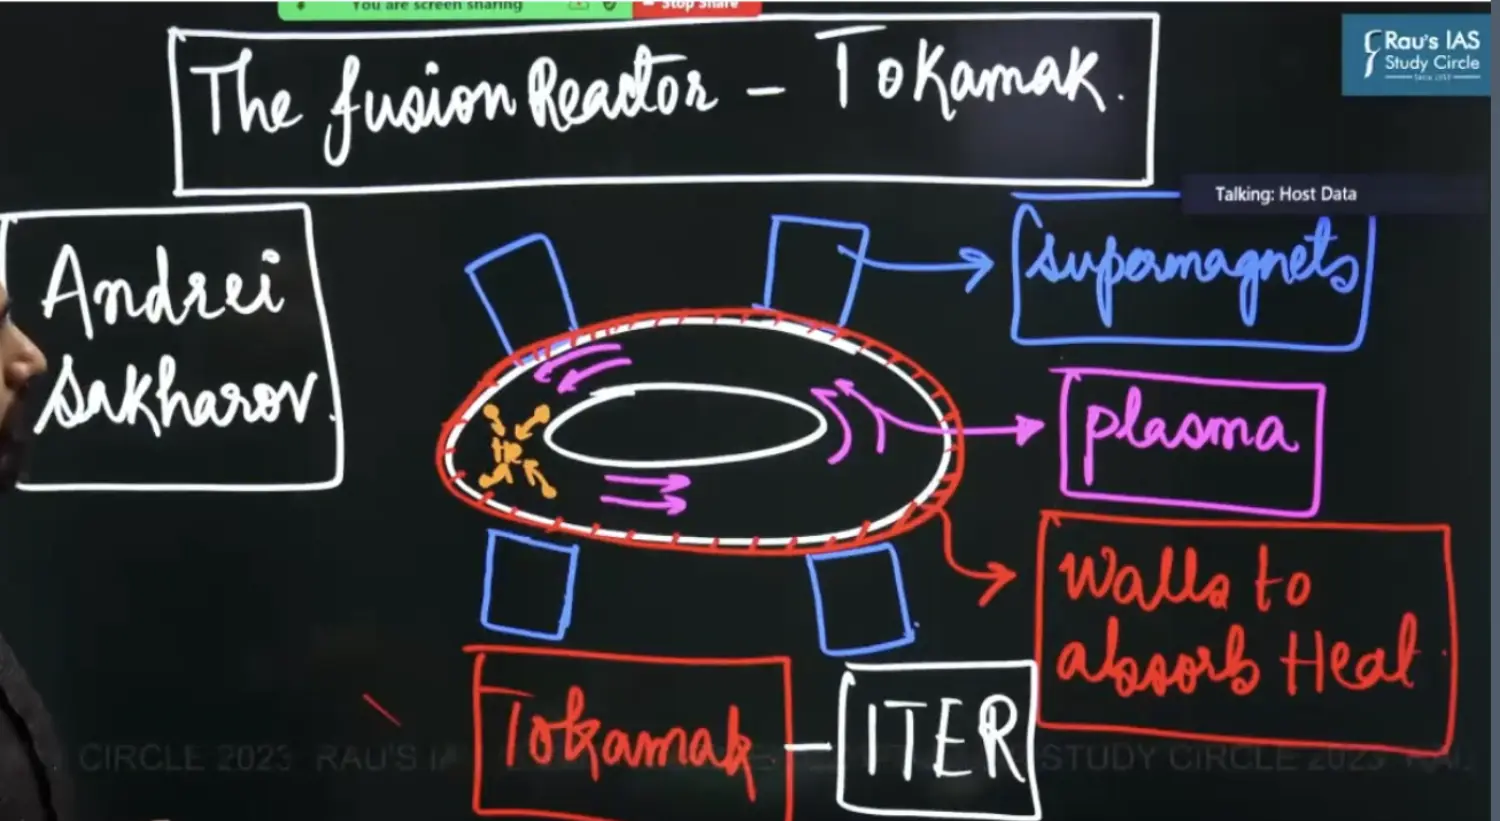 You are screen sharing
Stop Share
The fusion Reactor - Tokamak.
Rau's IAS
Study Circle
Since 1953
Talking: Host Data
Andrei
Sakharov
supermagnets
plasma
He
Walls to
absorb Heat
Tokamak - ITER
CIRCLE 2023 RAU'S IA
STUDY CIRCLE 2023